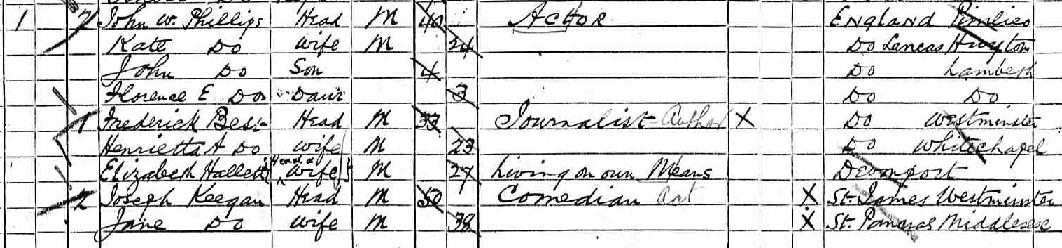 1 2 John W. Phillips Head M 40 ACTOR ENGLAND Pimlico
Kate Do Wife M 24 Do Lancas Huyton
John Do Son 4 Do Lambeth
Florence E Do Daur 3 Do Do
1 Frederick Best Head M 33 Journalist Author X Do Westminster
Henrietta A Do Wife M 23 Do Whitechapel
Elizabeth Hallett Head or Wife M 27 Living on own Means Devonport
2 Joseph Keegan Head M 50 Comedian Art X St. James Westminster
Jane Do Wife M 38 X St. Pancras Middlesex